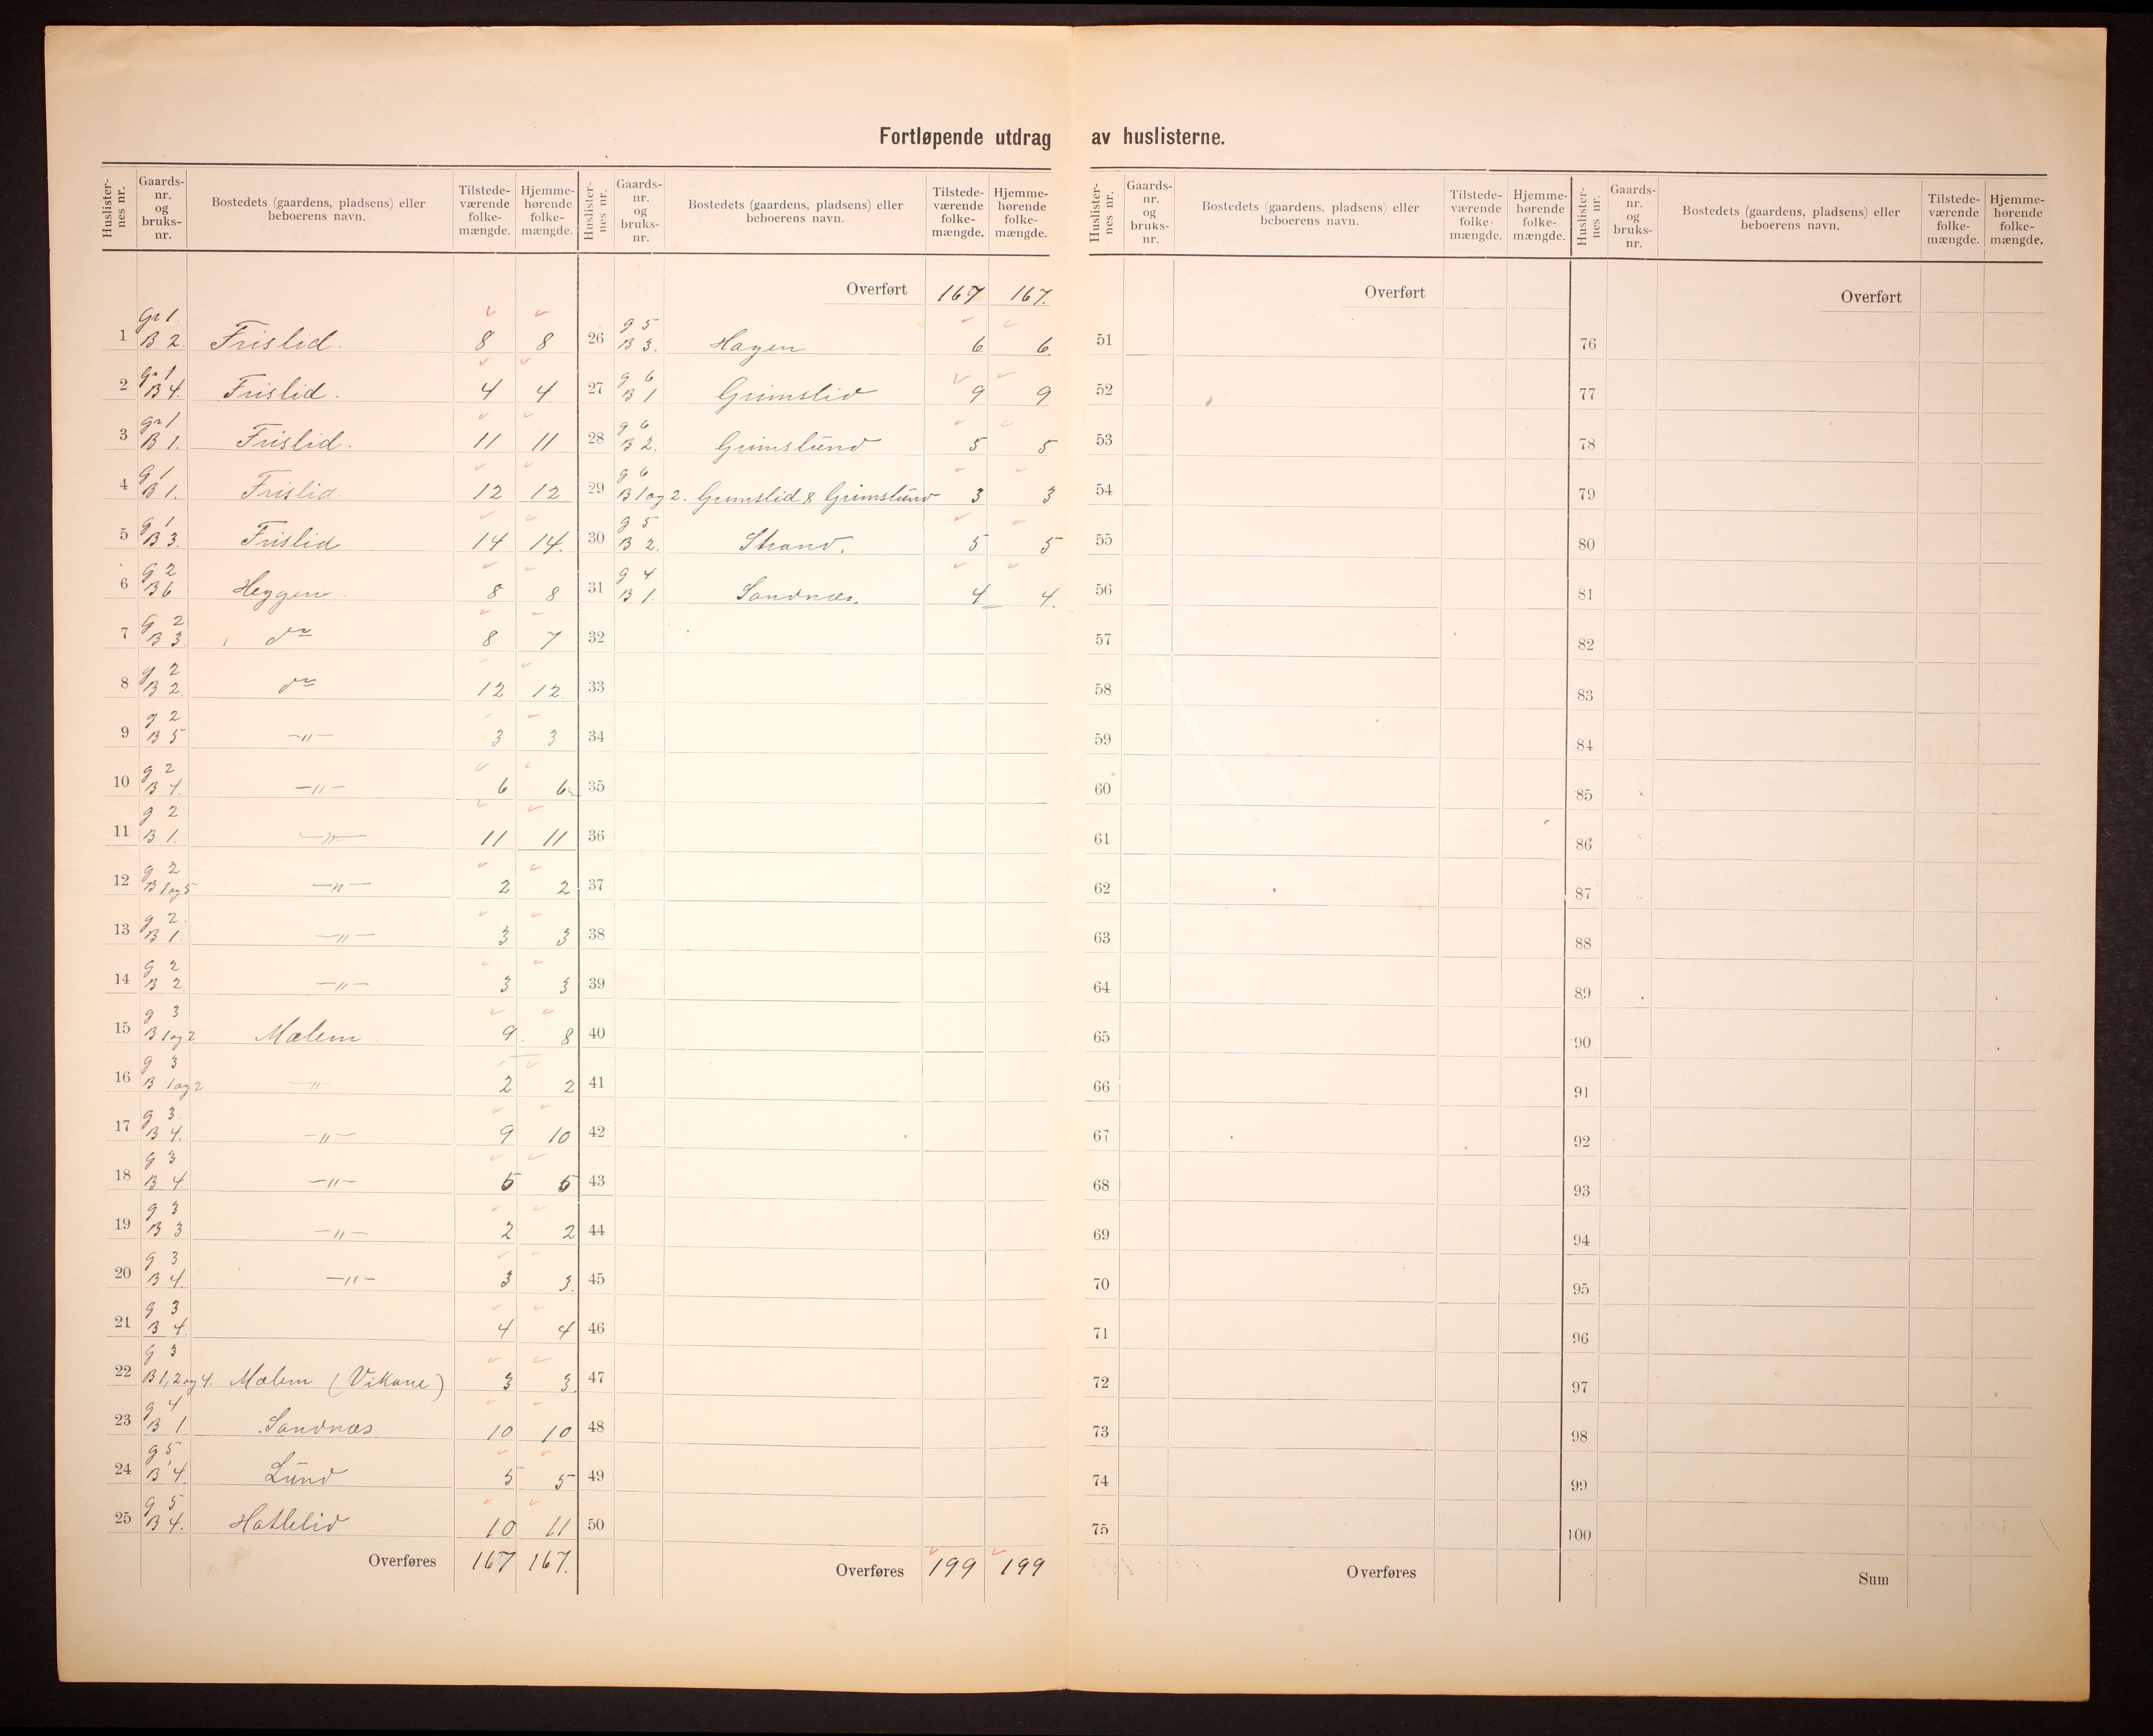 Fortløpende utdrag av huslisterne.
Huslisternes nr. | Gaardsnr. og bruksnr. | Bostedets (gaardens, pladsens) eller beboerens navn. | Tilstedeværende folkemængde. | Hjemmehørende folkemængde.
1 | Gr 1. B 2. | Frislid. | 8 | 8
2 | Gr 1 B 4. | Frislid. | 4 | 4
3 | gr 1 B 1. | Frislid. | 11 | 11
4 | g 1 B 1. | Frislid | 12 | 12
5 | g 1 B 3. | Frislid | 14 | 14.
6 | g 2 B 6 | Heggen | 8 | 8
7 | g 2 B 3. | do | 8 | 7
8 | g 2 B 2. | do | 12 | 12
9 | g 2 B 5 | —„— | 3 | 3
10 | g 2 B 4. | —„— | 6 | 6
11 | g 2 B 1. | —„— | 11 | 11
12 | g 2 B 1 og 5 | —„— | 2 | 2
13 | g 2. B 1. | —„— | 3 | 3
14 | g 2 B 2 | —„— | 3 | 3
15 | g 3 B 1 og 2 | Mælem | 9 | 8
16 | g 3 B 1 og 2 | —„— | 2 | 2
17 | g 3 B 4. | —„— | 9 | 10
18 | g 3 B 4 | —„— | 5 | 5
19 | g 3 B 3 | —„— | 2 | 2
20 | g 3 B 4. | —„— | 3 | 3.
21 | g 3 B 4. | 4 | 4
22 | g 3 B 1, 2 og 4. | Mælem (Vikane) | 3 | 3
23 | g 4 B 1 | Sandnæs | 10 | 10
24 | g 5 B 4. | Lund | 5 | 5
25 | g 5 B 4. | Hatlelid | 10 | 11
Overføres | 167 | 167.
Huslisternes nr. | Gaardsnr. og bruksnr. | Bostedets (gaardens, pladsens) eller beboerens navn. | Tilstedeværende folkemængde. | Hjemmehørende folkemængde.
Overført | 167 | 167.
26 | g 5 B 3. | Hagen | 6 | 6.
27 | g 6 B 1 | Grimslid | 9 | 9
28 | g 6 B 2. | Grimslund | 5 | 5
29 | g 6 B 1 og 2. | Grimslid & Grimslund | 3 | 3
30 | g 5 B 2. | Strand. | 5 | 5
31 | g 4 B 1. | Sandnæs. | 4 | 4.
32
33
34
35
36
37
38
39
40
41
42
43
44
45
46
47
48
49
50
Overføres | 199 | 199
Huslisternes nr. | Gaardsnr. og bruksnr. | Bostedets (gaardens, pladsens) eller beboerens navn. | Tilstedeværende folkemængde. | Hjemmehørende folkemængde.
Overført
51
52
53
54
55
56
57
58
59
60
61
62
63
64
65
66
67
68
69
70
71
72
73
74
75
Overføres
Huslisternes nr. | Gaardsnr. og bruksnr. | Bostedets (gaardens, pladsens) eller beboerens navn. | Tilstedeværende folkemængde. | Hjemmehørende folkemængde.
Overført
76
77
78
79
80
81
82
83
84
85
86
87
88
89
90
91
92
93
94
95
96
97
98
99
100
Sum